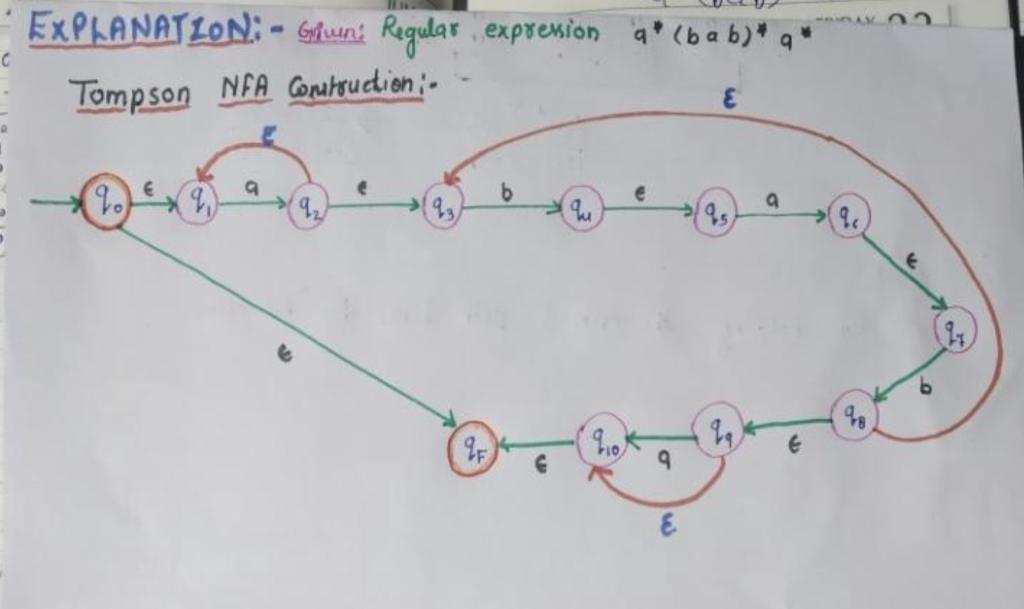 EXPLANATION:- Given: Regular expression a* (bab)* a*
Tompson NFA Construction:-
ε
ε
q0 ε q1 a q2 ε q3 b q4 ε q5 a q6
ε
q7
ε
b
qF ε q10 a q9 ε q8
ε